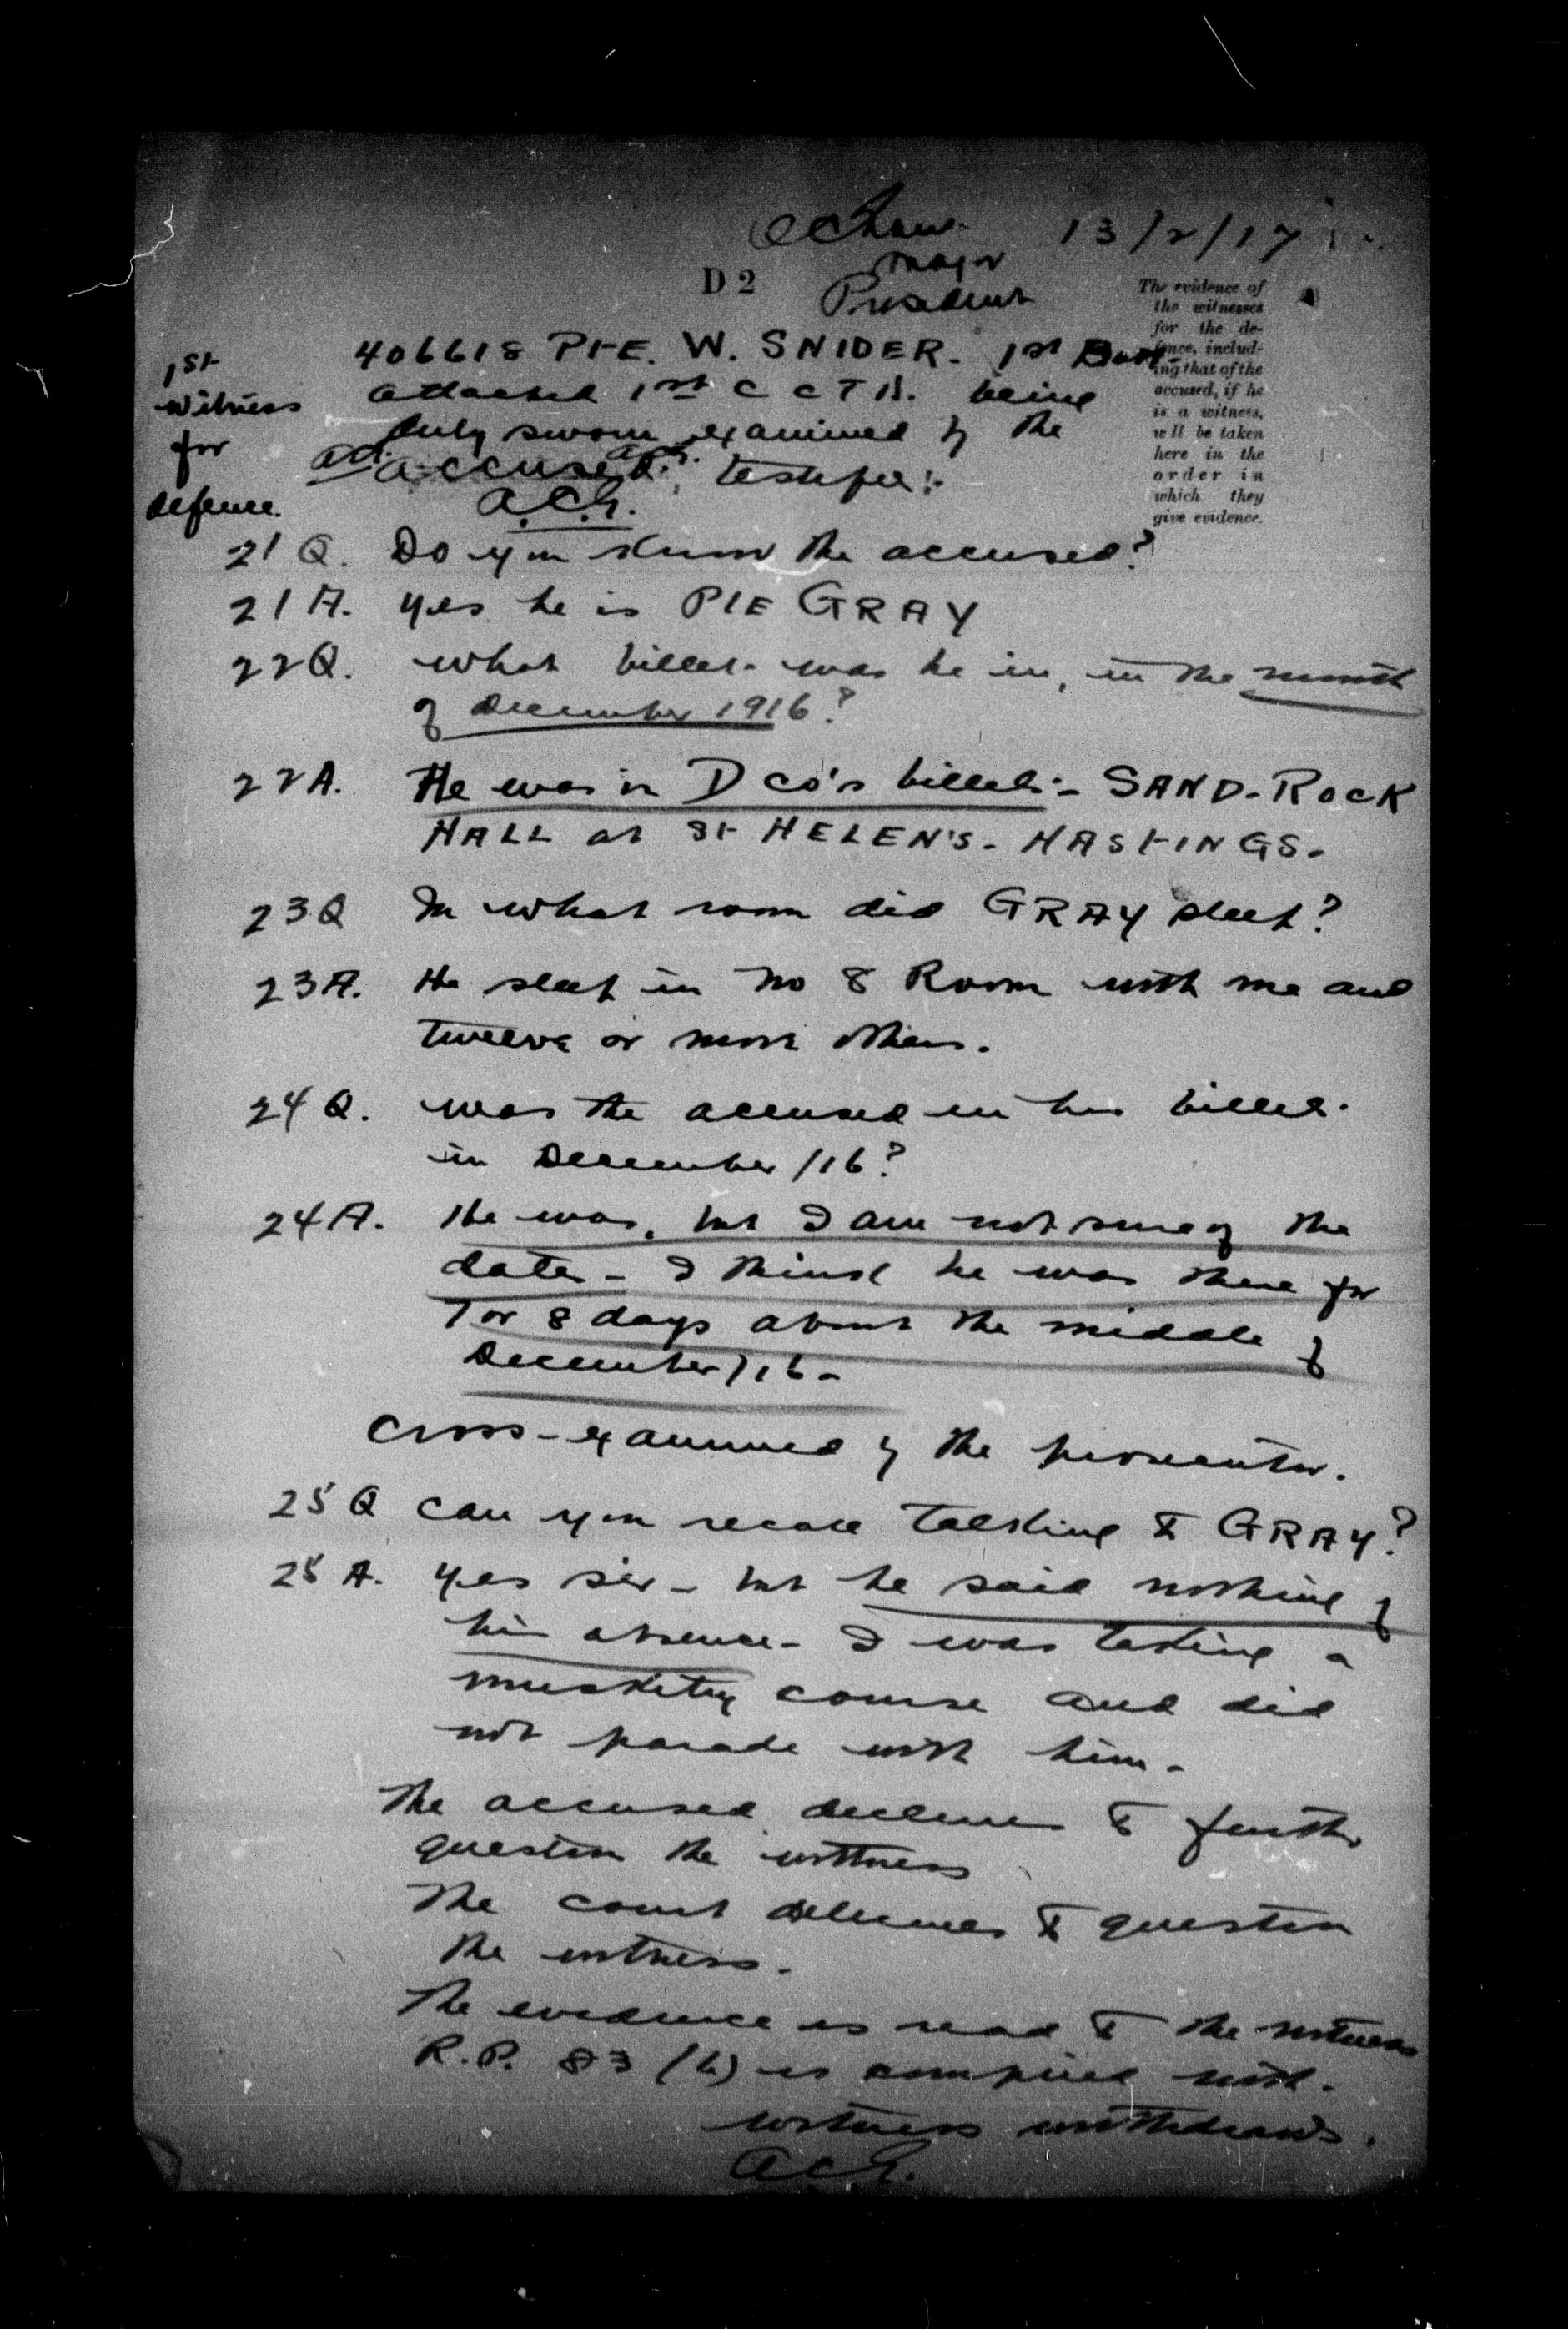 13/2/17
Major
D 2
President
The evidence of
the witnesses
for the de-
fence, includ-
ing that of the
accused, if he
is a witness,
will be taken
here in the
order in
which they
give evidence.
1st
witness
for
defence.
406618 PTE. W. SNIDER. 1st Batt.
attached 1st C C T B. being
duly sworn, examined by the
accused, testifies:-
21 Q. Do you know the accused?
21 A. Yes he is PTE GRAY
22 Q. What billet was he in, in the month
of December 1916?
22 A. He was in D Co's billet:- SAND-ROCK
HALL at St HELEN'S. HASTINGS.
23 Q In what room did GRAY sleep?
23 A. He slept in No 8 Room with me and
twelve or more others.
24 Q. Was the accused in his billet.
in December /16?
24 A. He was, but I am not sure of the
date - I think he was there for
7 or 8 days about the middle of
December /16 -
Cross-examined by the prosecutor.
25 Q Can you recall talking to GRAY?
25 A. Yes sir - but he said nothing of
his absence - I was taking a
musketry course and did
not parade with him -
The accused declines to further
question the witness
The court declines to question
the witness.
The evidence is read to the witness
R.P. 83 (b) is complied with.
Witness withdraws.